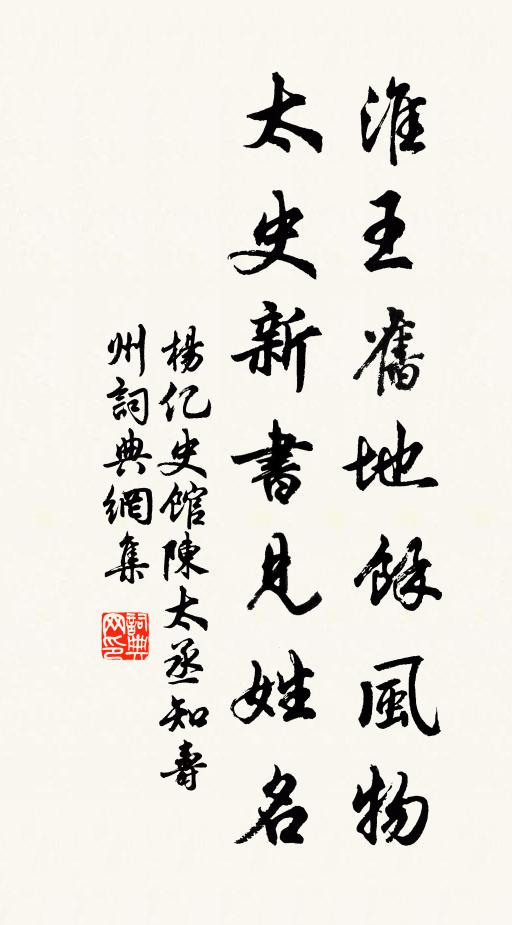 淮王舊地餘風物
太史新書見姓名
楊亿史館陳太丞知壽
州詞典網集
詞典网印